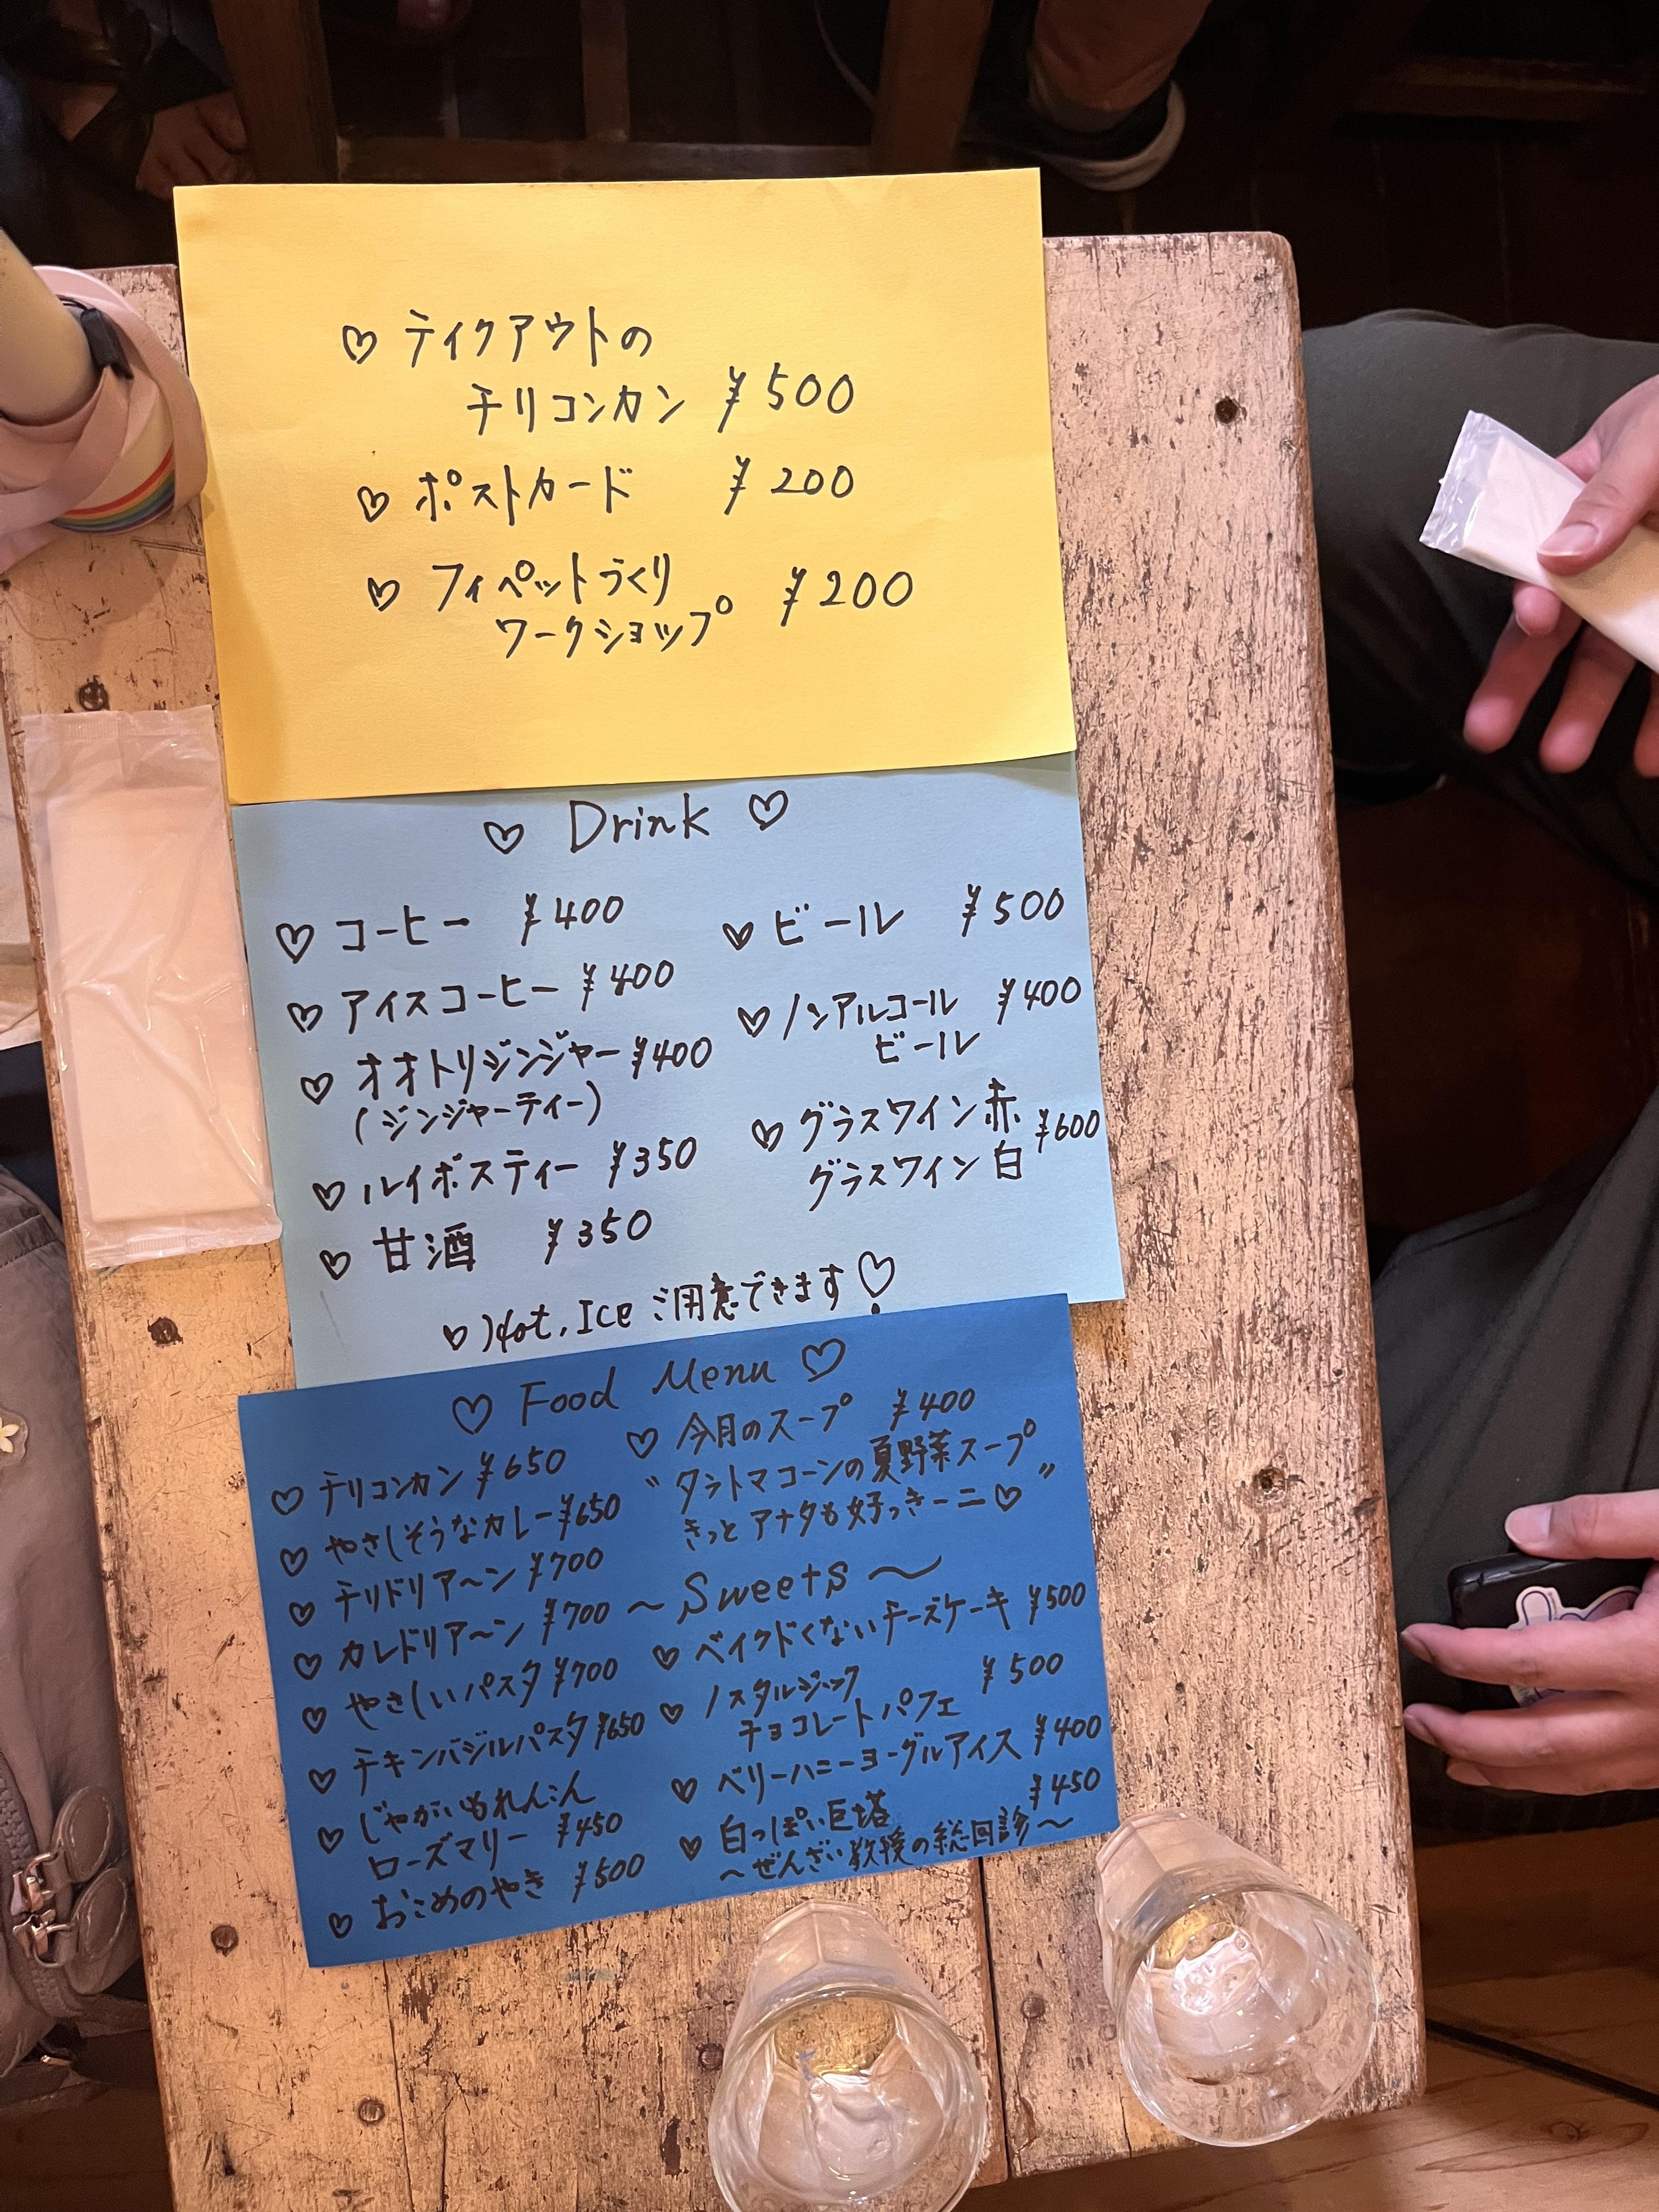 ♡ ティクアウトの
チリコンカン ¥500
♡ ポストカード ¥200
♡ フィペットづくり
ワークショップ ¥200
♡ Drink ♡
♡ コーヒー ¥400
♡ アイスコーヒー ¥400
♡ オオトリジンジャー ¥400
(ジンジャーティー)
♡ ルイボスティー ¥350
♡ 甘酒 ¥350
♡ ビール ¥500
♡ ノンアルコール ¥400
ビール
♡ グラスワイン赤 ¥600
グラスワイン白
♡ Hot, Ice ご用意できます♡
♡ Food Menu ♡
♡ チリコンカン ¥650
♡ やさしそうなカレー ¥650
♡ チリドリア〜ン ¥700
♡ カレドリア〜ン ¥700
♡ やさしいパスタ ¥700
♡ チキンバジルパスタ ¥650
♡ じゃがいもれんこん
ローズマリー ¥450
♡ おこめのやき ¥500
♡ 今月のスープ ¥400
"タラトマコーンの夏野菜スープ"
きっとアナタも好っきーニ♡
〜 Sweets 〜
♡ ベイクドくないチーズケーキ ¥500
♡ ノスタルジック ¥500
チョコレートパフェ
♡ ベリーハニーヨーグルアイス ¥400
♡ 白っぽい巨塔 ¥450
〜ぜんざい教授の総回診〜